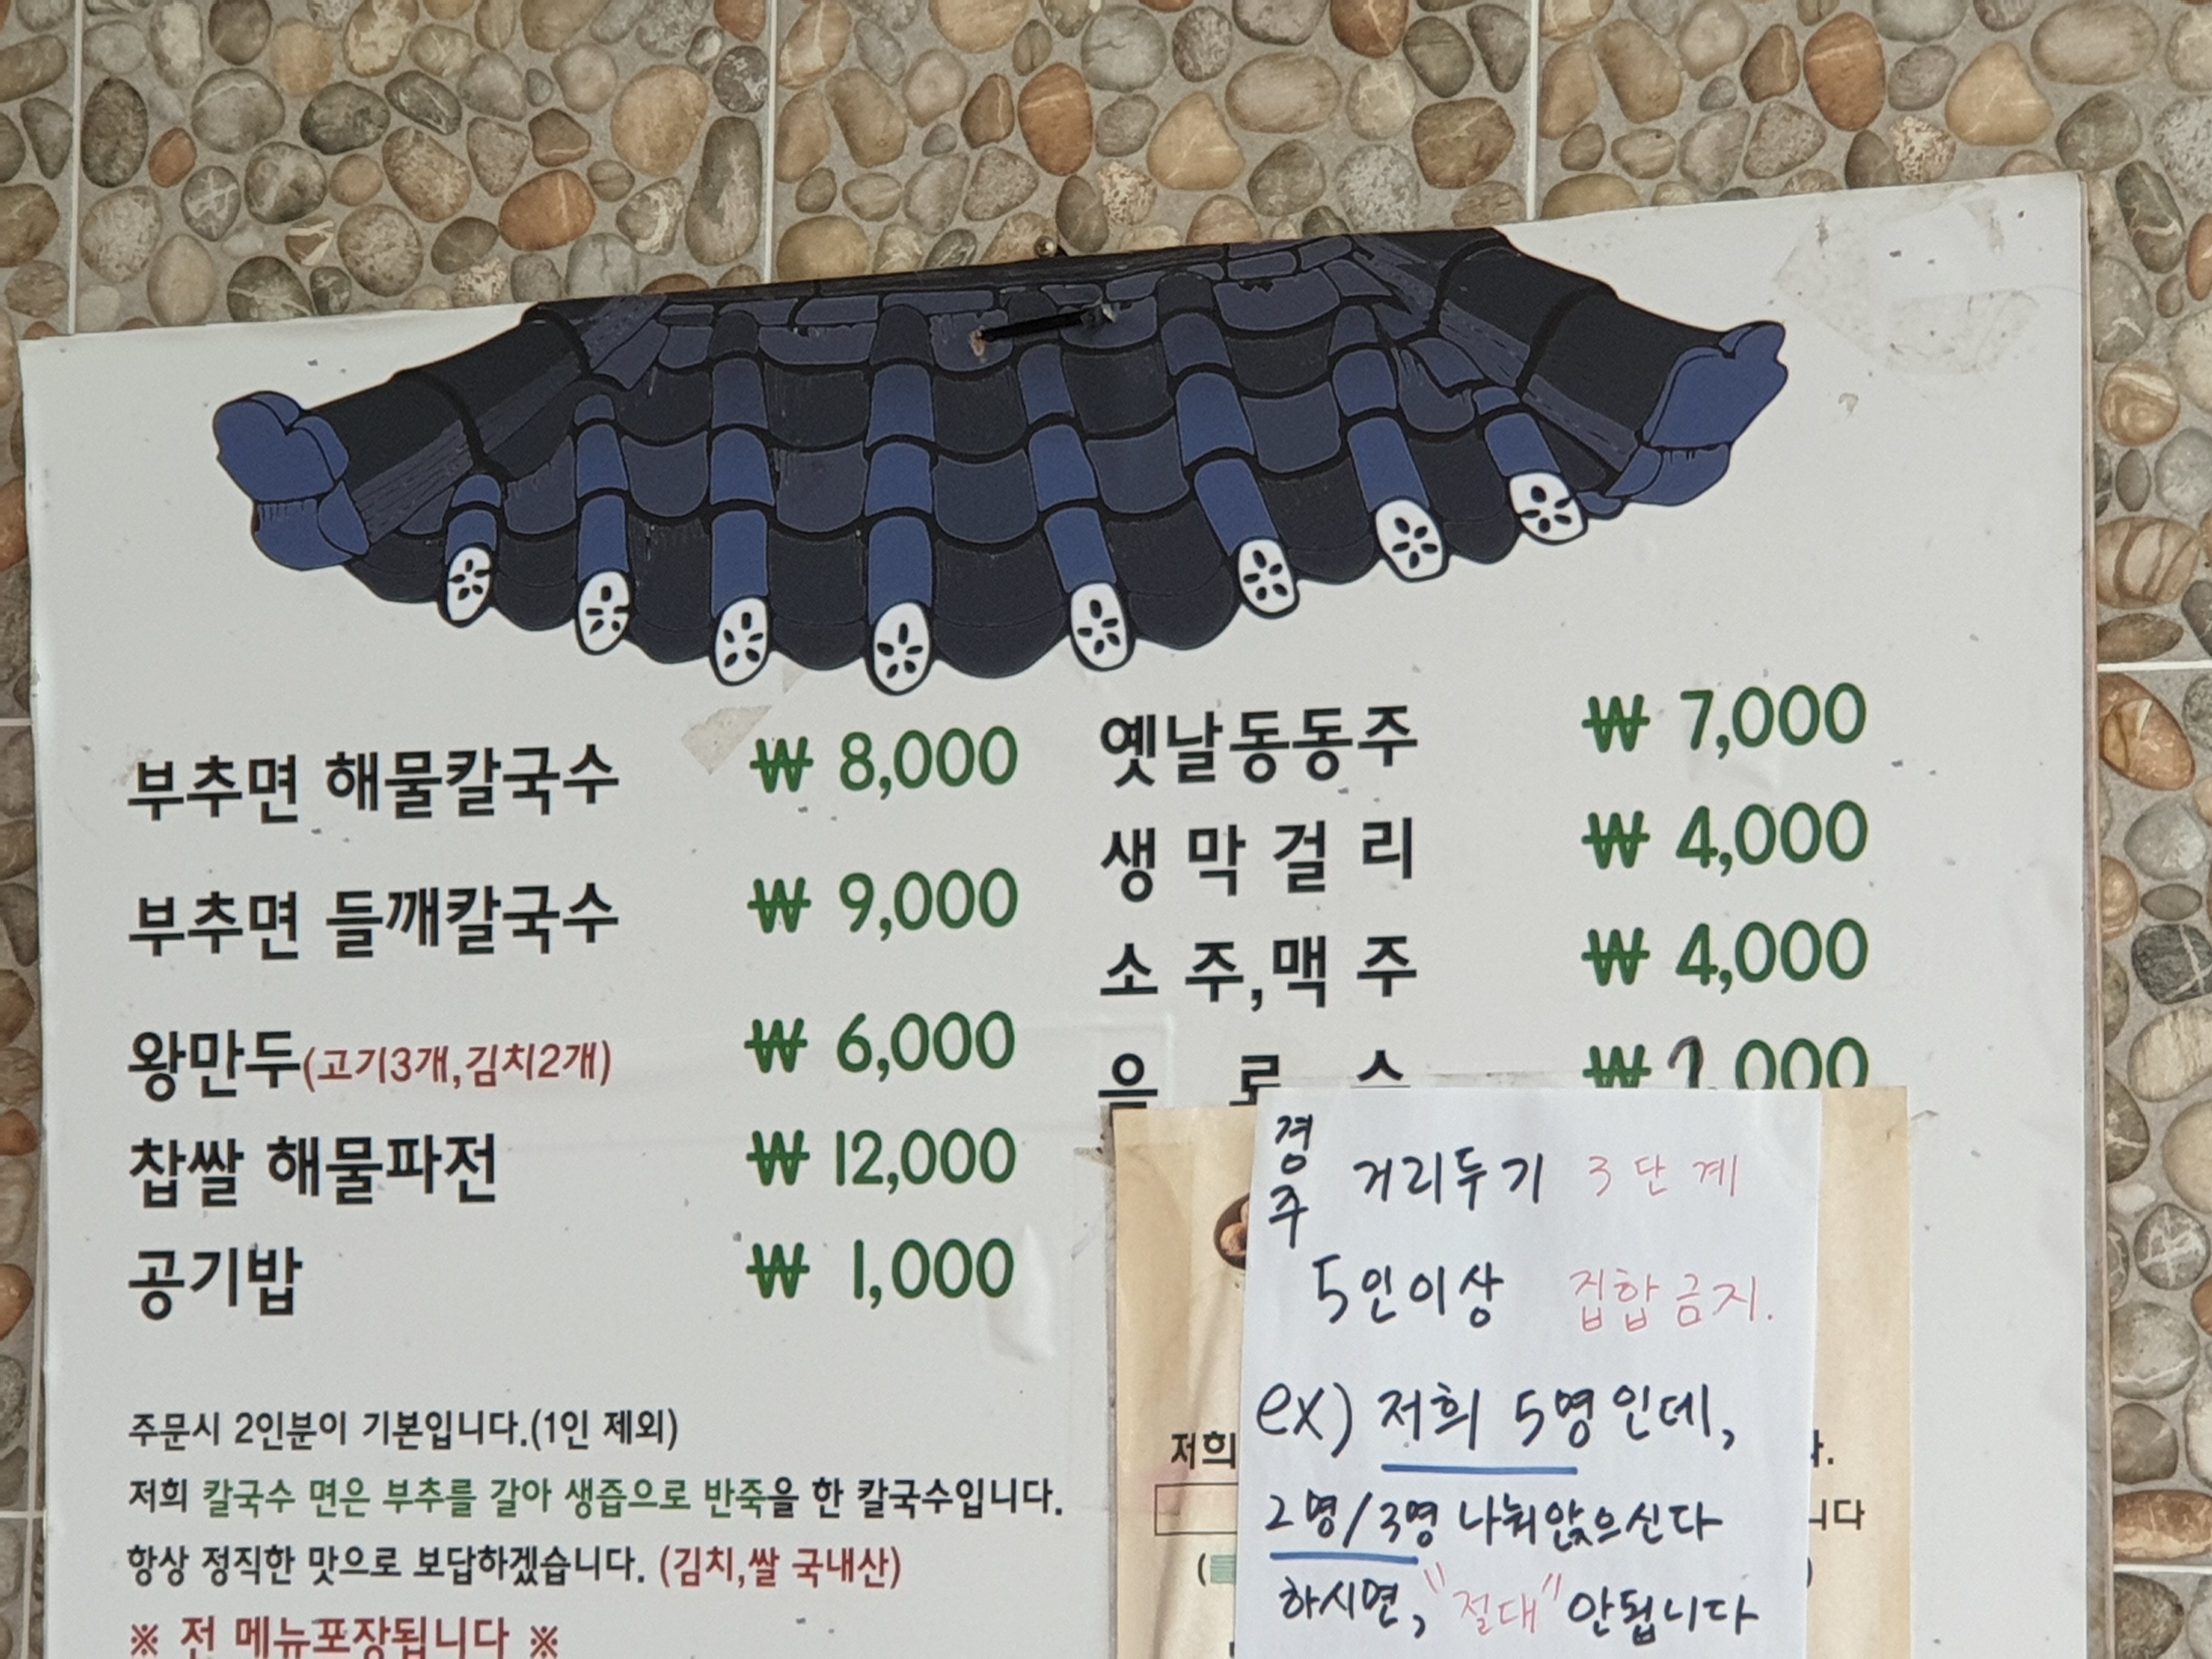 부추면 해물칼국수 ₩ 8,000
부추면 들깨칼국수 ₩ 9,000
왕만두(고기3개,김치2개) ₩ 6,000
찹쌀 해물파전 ₩ 12,000
공기밥 ₩ 1,000
옛날동동주 ₩ 7,000
생 막 걸 리 ₩ 4,000
소 주,맥 주 ₩ 4,000
음 료 수
주문시 2인분이 기본입니다.(1인 제외)
저희 칼국수 면은 부추를 갈아 생즙으로 반죽을 한 칼국수입니다.
항상 정직한 맛으로 보답하겠습니다. (김치,쌀 국내산)
※ 전 메뉴포장됩니다 ※
경주 거리두기 3단계
5인이상 집합금지.
ex) 저희 5명인데,
2명/3명 나눠앉으신다
하시면, "절대" 안됩니다
저희